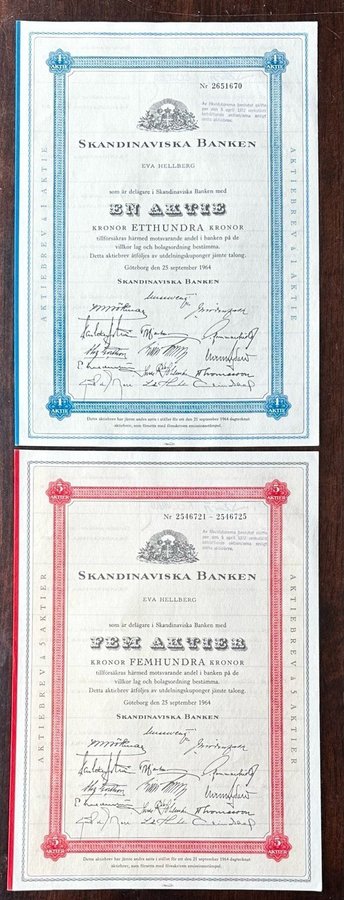 1
AKTIE
1
AKTIE
Nr 2651670
SKANDINAVISKA BANKEN
EVA HELLBERG
som är delägare i Skandinaviska Banken med
EN AKTIE
KRONOR ETTHUNDRA KRONOR
tillförsäkras härmed motsvarande andel i banken på de
villkor lag och bolagsordning bestämma.
Detta aktiebrev åtföljes av utdelningskuponger jämte talong.
Göteborg den 25 september 1964
SKANDINAVISKA BANKEN
AKTIEBREV à 1 AKTIE
AKTIEBREV à 1 AKTIE
1
AKTIE
1
AKTIE
Detta aktiebrev har jämte andra satts i stället för ett den 25 september 1964 dagtecknat
aktiebrev, som försetts med föreskriven emissionsstämpel.
5
AKTIER
5
AKTIER
Nr 2546721 - 2546725
SKANDINAVISKA BANKEN
EVA HELLBERG
som är delägare i Skandinaviska Banken med
FEM AKTIER
KRONOR FEMHUNDRA KRONOR
tillförsäkras härmed motsvarande andel i banken på de
villkor lag och bolagsordning bestämma.
Detta aktiebrev åtföljes av utdelningskuponger jämte talong.
Göteborg den 25 september 1964
SKANDINAVISKA BANKEN
AKTIEBREV à 5 AKTIER
AKTIEBREV à 5 AKTIER
5
AKTIER
5
AKTIER
Detta aktiebrev har jämte andra satts i stället för ett den 25 september 1964 dagtecknat
aktiebrev, som försetts med föreskriven emissionsstämpel.